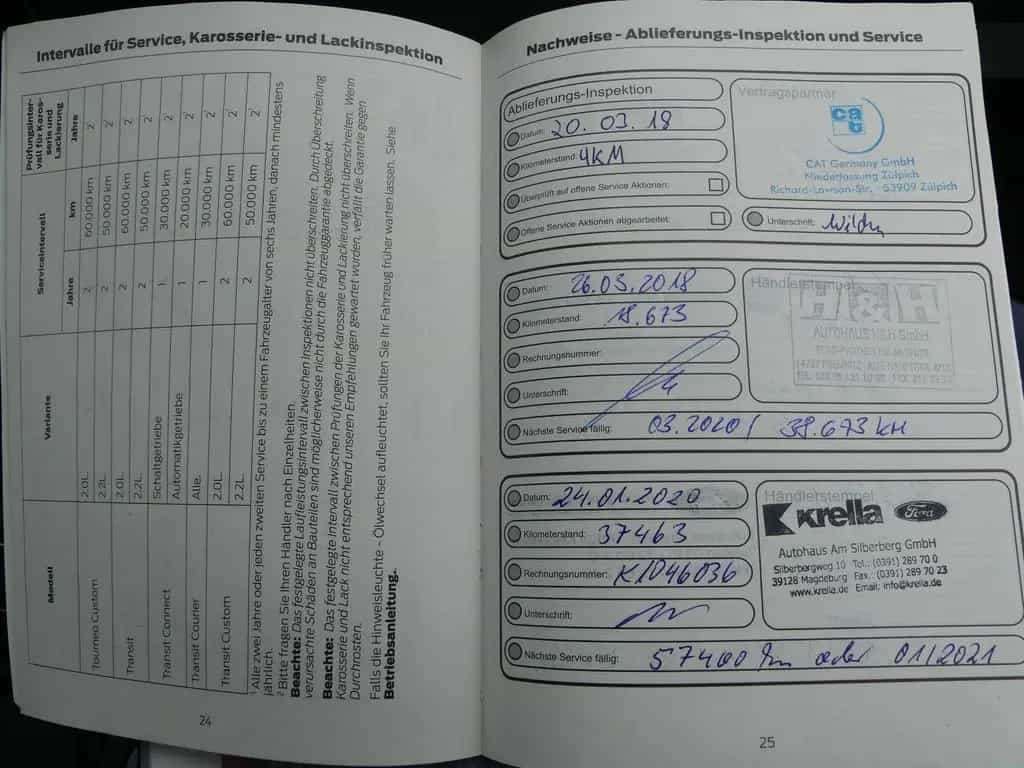 Intervalle für Service, Karosserie- und Lackinspektion
Modell Variante Serviceintervall Prüfungsinter-
vall für Karos-
serie und
Lackierung
Jahre km Jahre
Tourneo Custom 2.0L 2 60.000 km 2¹
2.2L 2 50.000 km 2¹
Transit 2.0L 2 60.000 km 2¹
2.2L 2 50.000 km 2¹
Transit Connect Schaltgetriebe 1 30.000 km 2¹
Automatikgetriebe 1 20.000 km 2¹
Transit Courier Alle. 1 30.000 km 2¹
Transit Custom 2.0L 2 60.000 km 2¹
2.2L 2 50.000 km 2¹
¹ Alle zwei Jahre oder jeden zweiten Service bis zu einem Fahrzeugalter von sechs Jahren, danach mindestens
jährlich.
² Bitte fragen Sie Ihren Händler nach Einzelheiten.
Beachte: Das festgelegte Laufleistungsintervall zwischen Inspektionen nicht überschreiten. Durch Überschreitung
verursachte Schäden an Bauteilen sind möglicherweise nicht durch die Fahrzeuggarantie abgedeckt.
Beachte: Das festgelegte Intervall zwischen Prüfungen der Karosserie und Lackierung nicht überschreiten. Wenn
Karosserie und Lack nicht entsprechend unseren Empfehlungen gewartet wurden, verfällt die Garantie gegen
Durchrosten.
Falls die Hinweisleuchte - Ölwechsel aufleuchtet, sollten Sie Ihr Fahrzeug früher warten lassen. Siehe
Betriebsanleitung.
24
Nachweise - Ablieferungs-Inspektion und Service
Ablieferungs-Inspektion
Datum: 20. 03. 18
Kilometerstand: 4KM
Überprüft auf offene Service Aktionen:
Offene Service Aktionen abgearbeitet:
Vertragspartner
CAT Germany GmbH
Niederlassung Zülpich
Richard-Lawson-Str. · 53909 Zülpich
Unterschrift:
Datum: 26.03.2018
Kilometerstand: 18.673
Rechnungsnummer:
Unterschrift:
Nächste Service fällig: 03.2020 / 38.673 KM
Händlerstempel
H&H
AUTOHAUS H&H GmbH
Datum: 24.01.2020
Kilometerstand: 37463
Rechnungsnummer: K1046036
Unterschrift:
Nächste Service fällig: 57400 km oder 01/2021
Händlerstempel
Krella Ford
Autohaus Am Silberberg GmbH
Silberbergweg 10 Tel.: (0391) 289 70 0
39128 Magdeburg Fax.: (0391) 289 70 23
www.krella.de Email: info@krella.de
25